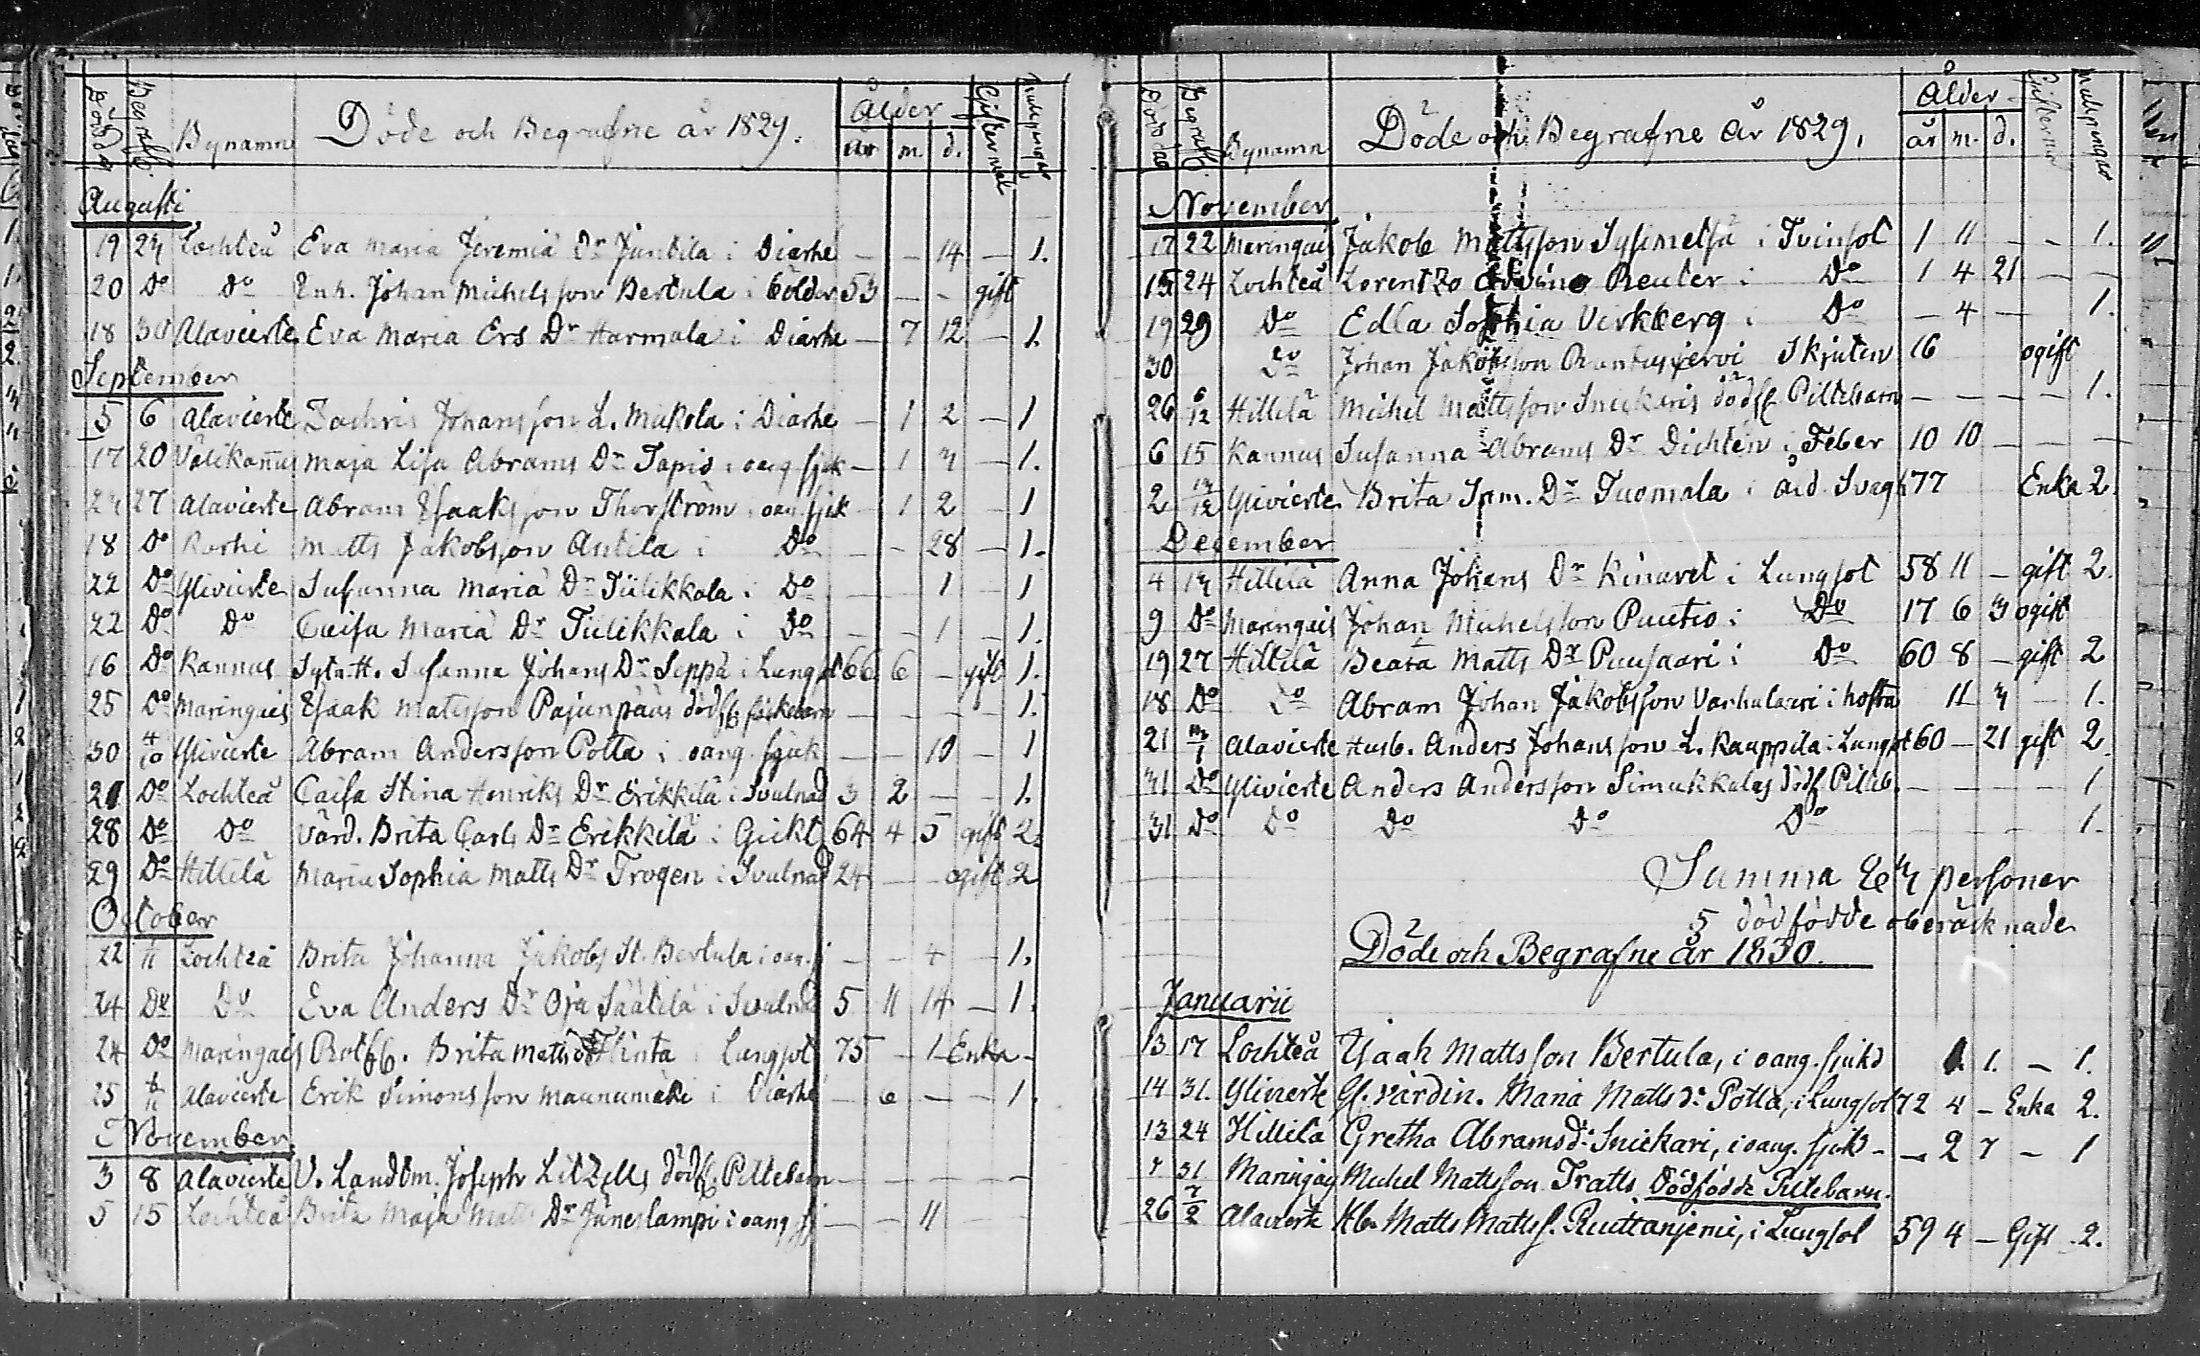 Bynamn Döde och Begrafne år 1829. Ålder
år m. d.
Augusti
19 23 Lochteå Eva Maria Jeremiä Dr Juntila i Diarhe – – 14 – 1.
20 Do Do Enh. Johan Michelsson Bertula i Ålder 53 – – gift
18 30 Alavieska Eva Maria Ers Dr Harmala i Diarhe – 7 12 – 1.
September
5 6 Alavieska Zachris Johansson L. Mickola i Diarhe – 1 2 – 1
17 20 Välikannus Maja Lisa Abrams Dr Tapio i oang sjuk – 1 3 – 1.
23 27 Alavieska Abram Isaaksson Thorström i oang sjuk – 1 2 – 1
18 Do Korhi Matts Jakobsson Antila i Do – – 28 – 1.
22 Do Ylivieska Susanna Maria Dr Tiilikkala i Do – – 1 1
22 Do Do Caisa Maria Dr Tiilikkala i Do – – 1 – 1.
16 Do Kannus Susanna Johans Dr Seppä i Lungsot 66 6 – gift 1.
25 Do Maringais Isaak Matsson Pajunpää – – – – 1.
30 4/10 Ylivieska Abram Andersson Potta i oang. sjuk – – 10 – 1
21 Do Lochteå Caisa Stina Henriks Dr Erikkilä i Svulnad 3 2 – – 1.
28 Do Do Värd. Brita Carls Dr Erikkilä i Gickt 64 4 5 gift 2.
29 Do Hillilä Maria Sophia Matts Dr Trogen i Svulnad 24 – – ogift 2
October
22 1/11 Lochteå Brita Johanna Jakobs Dr Bertula i oan. – – 4 – 1.
24 Do Do Eva Anders Dr Oja Säätilä i Svulnad 5 11 14 – 1.
24 Do Maringais Brita Matts Dr Flinta i Lungsot 75 – 1 Enka –
25 8/11 Alavieska Erik Simonsson Maunumäki i Diarhe – 6 – – 1.
November
3 8 Alavieska V. Landtm. Joseph Litzells dödf. Piltebarn – – – –
5 15 Lochteå Brita Maja Matts Dr Jäneslampi i oang sj – – 11
Bynamn Döde och Begrafne År 1829. Ålder
år m. d.
November
17 22 Maringais Jakob Mattsson Sysimetsä i Tvinsot 1 11 – – 1.
15 24 Lochteå Reuter i Do 1 4 21 – –
19 29 Do Edla Sophia Verkberg i Do – 4 – 1.
30 Do Johan Jakobsson Rantasjervi Skjuten 16 ogift
26 6/12 Hillilä Michel Mattsson Snickaris dödf. Piltebarn – – – – 1.
6 15 Kannus Susanna Abrams Dr Dichtén i Feber 10 10 – – –
2 13/12 Ylivieska Brita Sim. Dr Tuomala i åld. Svagh 77 Enka 2.
December
4 13 Hillilä Anna Johans Dr Kinaret i Lungsot 58 11 – gift 2.
9 Do Maringais Johan Michelsson Puutio i Do 17 6 3 ogift
19 27 Hillilä Beata Matts Dr Puusaari i Do 60 8 – gift 2
18 Do Do Abram Johan Jakobsson Varhulauri i hosta 11 3 – 1.
21 Alavieska Husb. Anders Johansson L. Kauppila i Lungsot 60 – 21 gift 2
31 Do Ylivieska Anders Andersson Simukkalas dödf. Piltb. – – – – 1
31 Do Do Do Do Do – – – – 1.
Summa personer
5 dödfödde oberäknade
Döde och Begrafne År 1830.
Januarii
13 17 Lochteå Isaak Mattsson Bertula, i oang. sjukd 1. – 1.
14 31. Ylivieska Gl. värdin. Maria Matts dr Potta, i Lungsot 72 4 – Enka 2.
13 24 Hillilä Gretha Abrams dr Snickari, i oang. sjukd – – 2 7 – 1
7 31 Maringais Michel Mattsson Tratts Dödfödde Piltebarn.
26 7/2 Alavieska Matts Mattss. Ruuttanjemi, i Lungsot 59 4 – Gift 2.